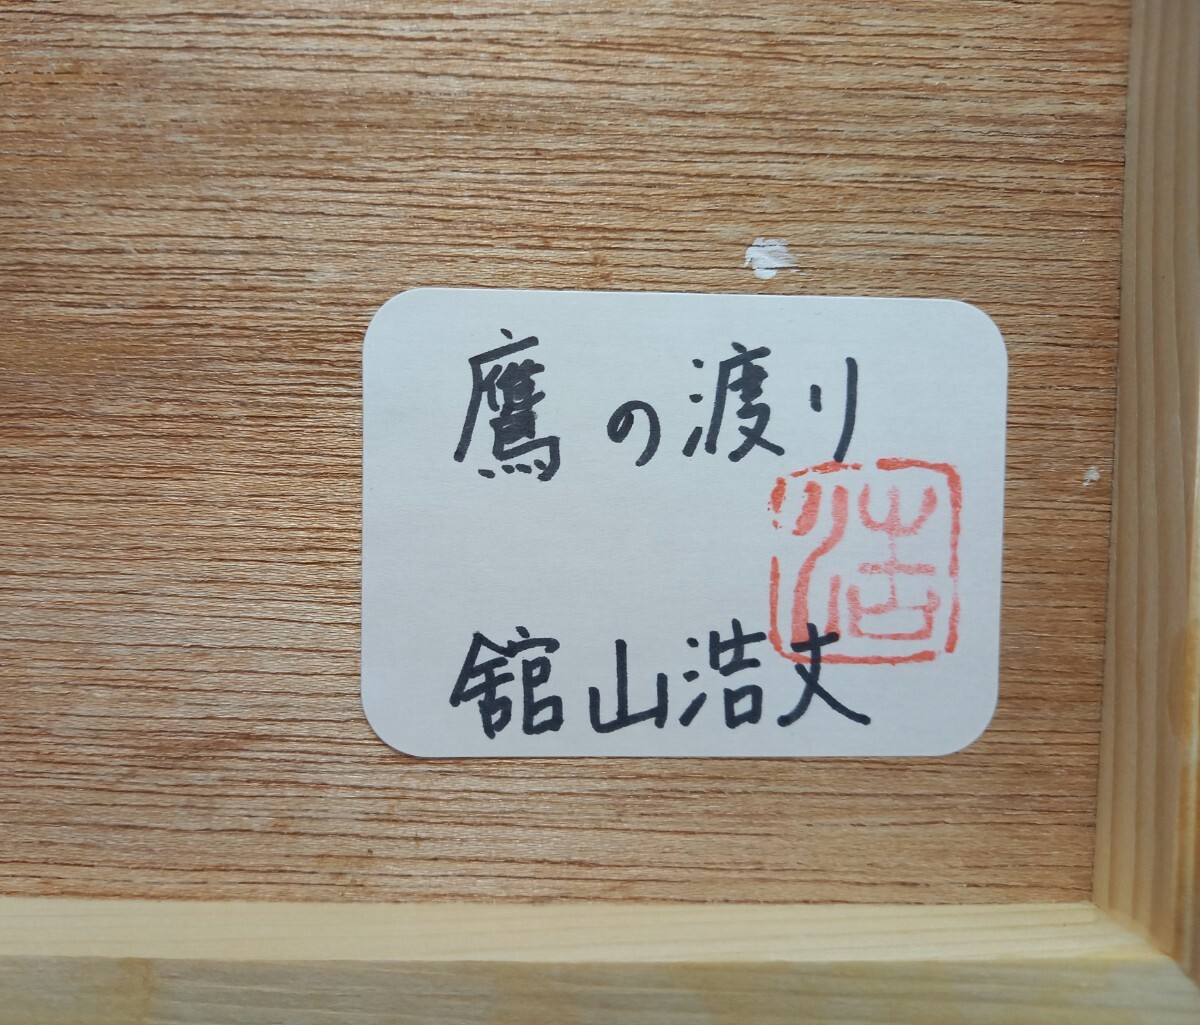 鷹の渡り
浩
舘山浩丈